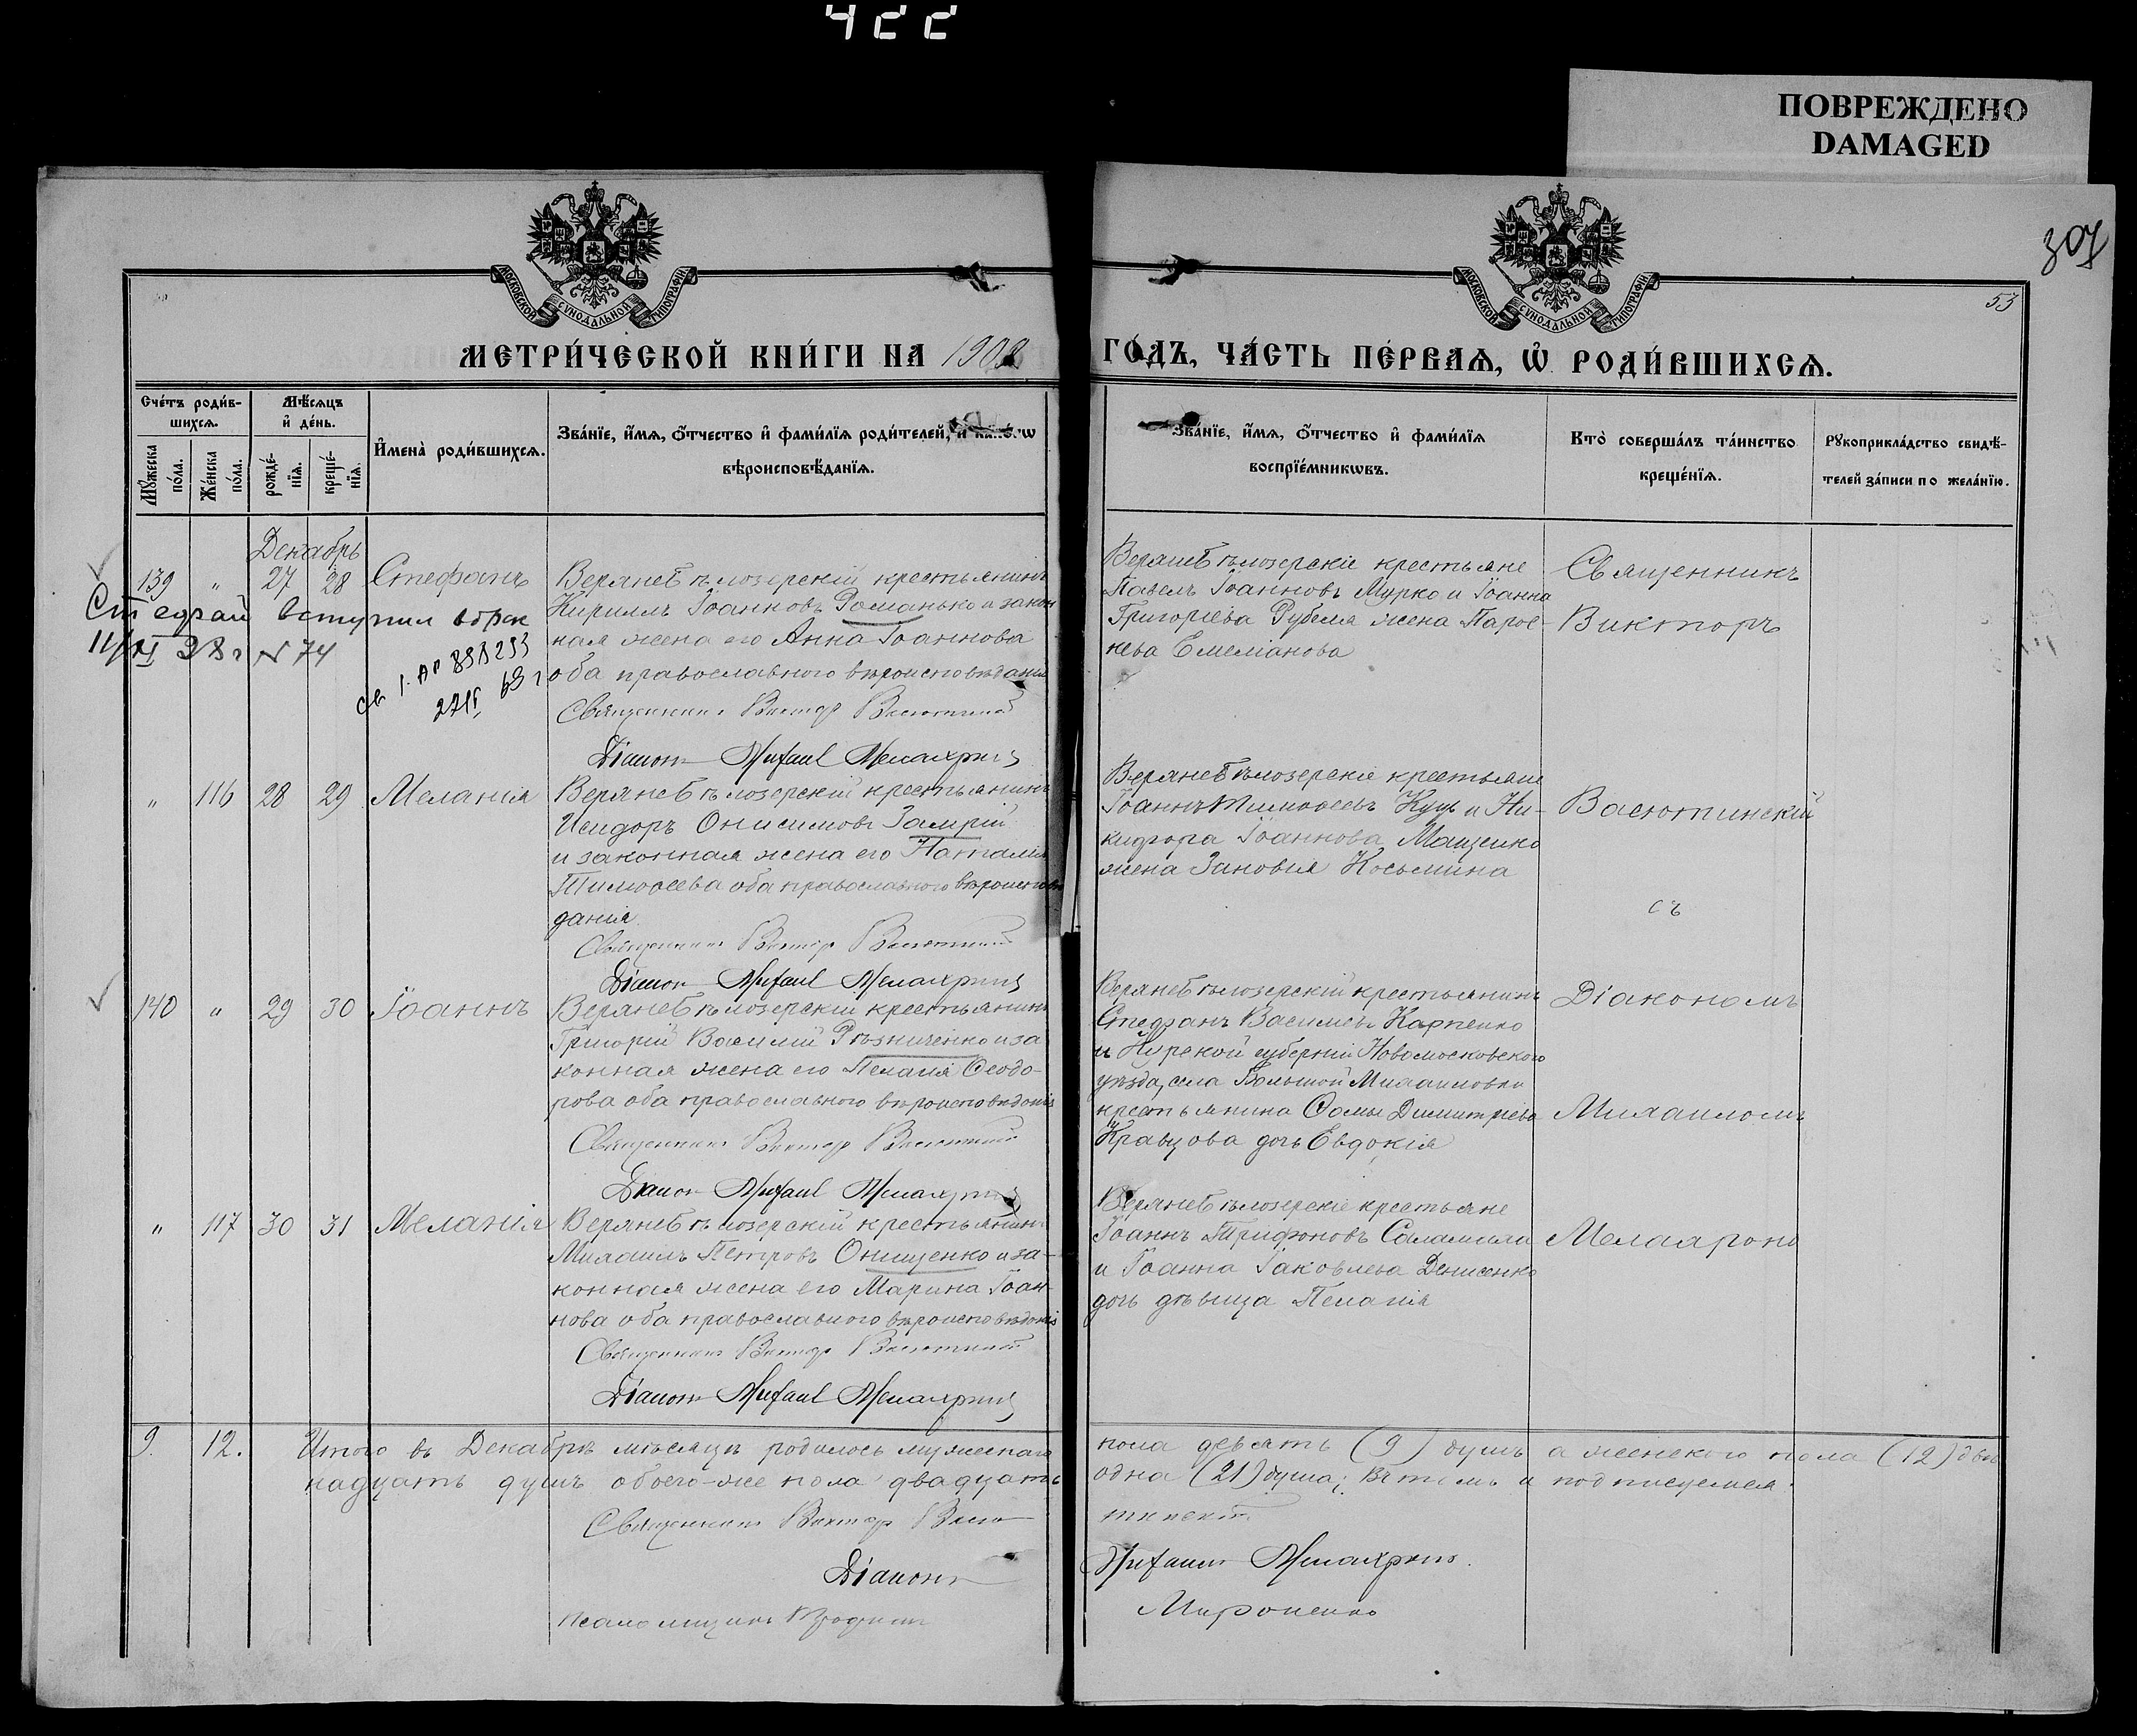 422
ПОВРЕЖДЕНО
DAMAGED
307
53
МОСКОВСКОЙ СѴНОДАЛЬНОЙ ТИПОГРАФІИ
МОСКОВСКОЙ СѴНОДАЛЬНОЙ ТИПОГРАФІИ
МЕТРИ́ЧЕСКОЙ КНИ́ГИ НА 1902
ГО́ДЪ, ЧА́СТЬ ПЕ́РВАѦ, Ѡ҆ РОДИ́ВШИХСѦ.
Сче́тъ роди́в-
шихсѧ.
Мꙋжеска по́ла.
Же́нска по́ла.
Мѣ́сѧцъ
и҆ де́нь.
рожде́-
нїѧ.
креще́-
нїѧ.
И҆мена̀ роди́вшихсѧ.
Зва́нїе, и҆́мѧ, ѻ҆́тчество и҆ фами́лїѧ роди́телей, и҆
вѣроисповѣ́данїѧ.
Зва́нїе, и҆́мѧ, ѻ҆́тчество и҆ фами́лїѧ
воспрїе́мникѡвъ.
Кто̀ соверша́лъ та́инство
креще́нїѧ.
Рꙋкоприкла́дство свидѣ́-
телей за́писи по жела́нїю.
Декабрь
139 " 27 28 Стефанъ
Верхнебѣлозерскій крестьянинъ
Кириллъ Іоанновъ Романько и закон
ная жена его Анна Іоаннова
оба православнаго вѣроисповѣданія
Священникъ Викторъ Васютинскій
Діаконъ Михаилъ Мелахринъ
вступил в брак
N 74
Верхнебѣлозерскіе крестьяне
Павелъ Іоанновъ Мурко и Іоанна
Григоріева Рубеля жена Парос-
кева Емеліанова
Священникъ
Викторъ
" 116 28 29 Меланія
Верхнебѣлозерскій крестьянинъ
Исидоръ Онисимовъ Галрій
и законная жена его Наталія
Тимоѳеева оба православнаго вѣроисповѣ
данія
Священникъ Викторъ Васютинскій
Діаконъ Михаилъ Мелахринъ
Верхнебѣлозерскіе крестьяне
Іоаннъ Тимоѳеевъ Куцъ и Ни-
кифора Іоаннова Мащенко
жена Зиновія Косьмина
Васютинскій
съ
140 " 29 30 Іоаннъ
Верхнебѣлозерскій крестьянинъ
Григорій Василій Рѣзниченко и за
конная жена его Пелагія Ѳеодо-
рова оба православнаго вѣроисповѣданія
Священникъ Викторъ Васютинскій
Діаконъ Михаилъ Мелахринъ
Верхнебѣлозерскій крестьянинъ
Стефанъ Васильевъ Карпенко
и Курской губерніи Новомосковского
уѣзда, села Большой Михаиловки
крестьянина Ѳомы Димитріева
Кравцова дочь Евдокія
Діакономъ
Михаиломъ
" 117 30 31 Меланія
Верхнебѣлозерскій крестьянинъ
Михаилъ Петровъ Онищенко и за-
конная жена его Марина Іоан-
нова оба православнаго вѣроисповѣданія
Священникъ Викторъ Васютинскій
Діаконъ Михаилъ Мелахринъ
Верхнебѣлозерскіе крестьяне
Іоаннъ Трифоновъ
и Іоанна Іаковлева Денисенко
дочь дѣвица Пелагія
9. 12. Итого въ Декабрѣ мѣсяцѣ родилось мужескаго
пола девять (9) душъ а женскаго пола (12) двѣ
надцать душъ обоего-же пола двадцать
одна (21) душа; въ томъ и подписуемся.
Священникъ Викторъ Васю
тинскій
Діаконъ
Михаилъ Мелахринъ.
Псаломщикъ
Мироненко